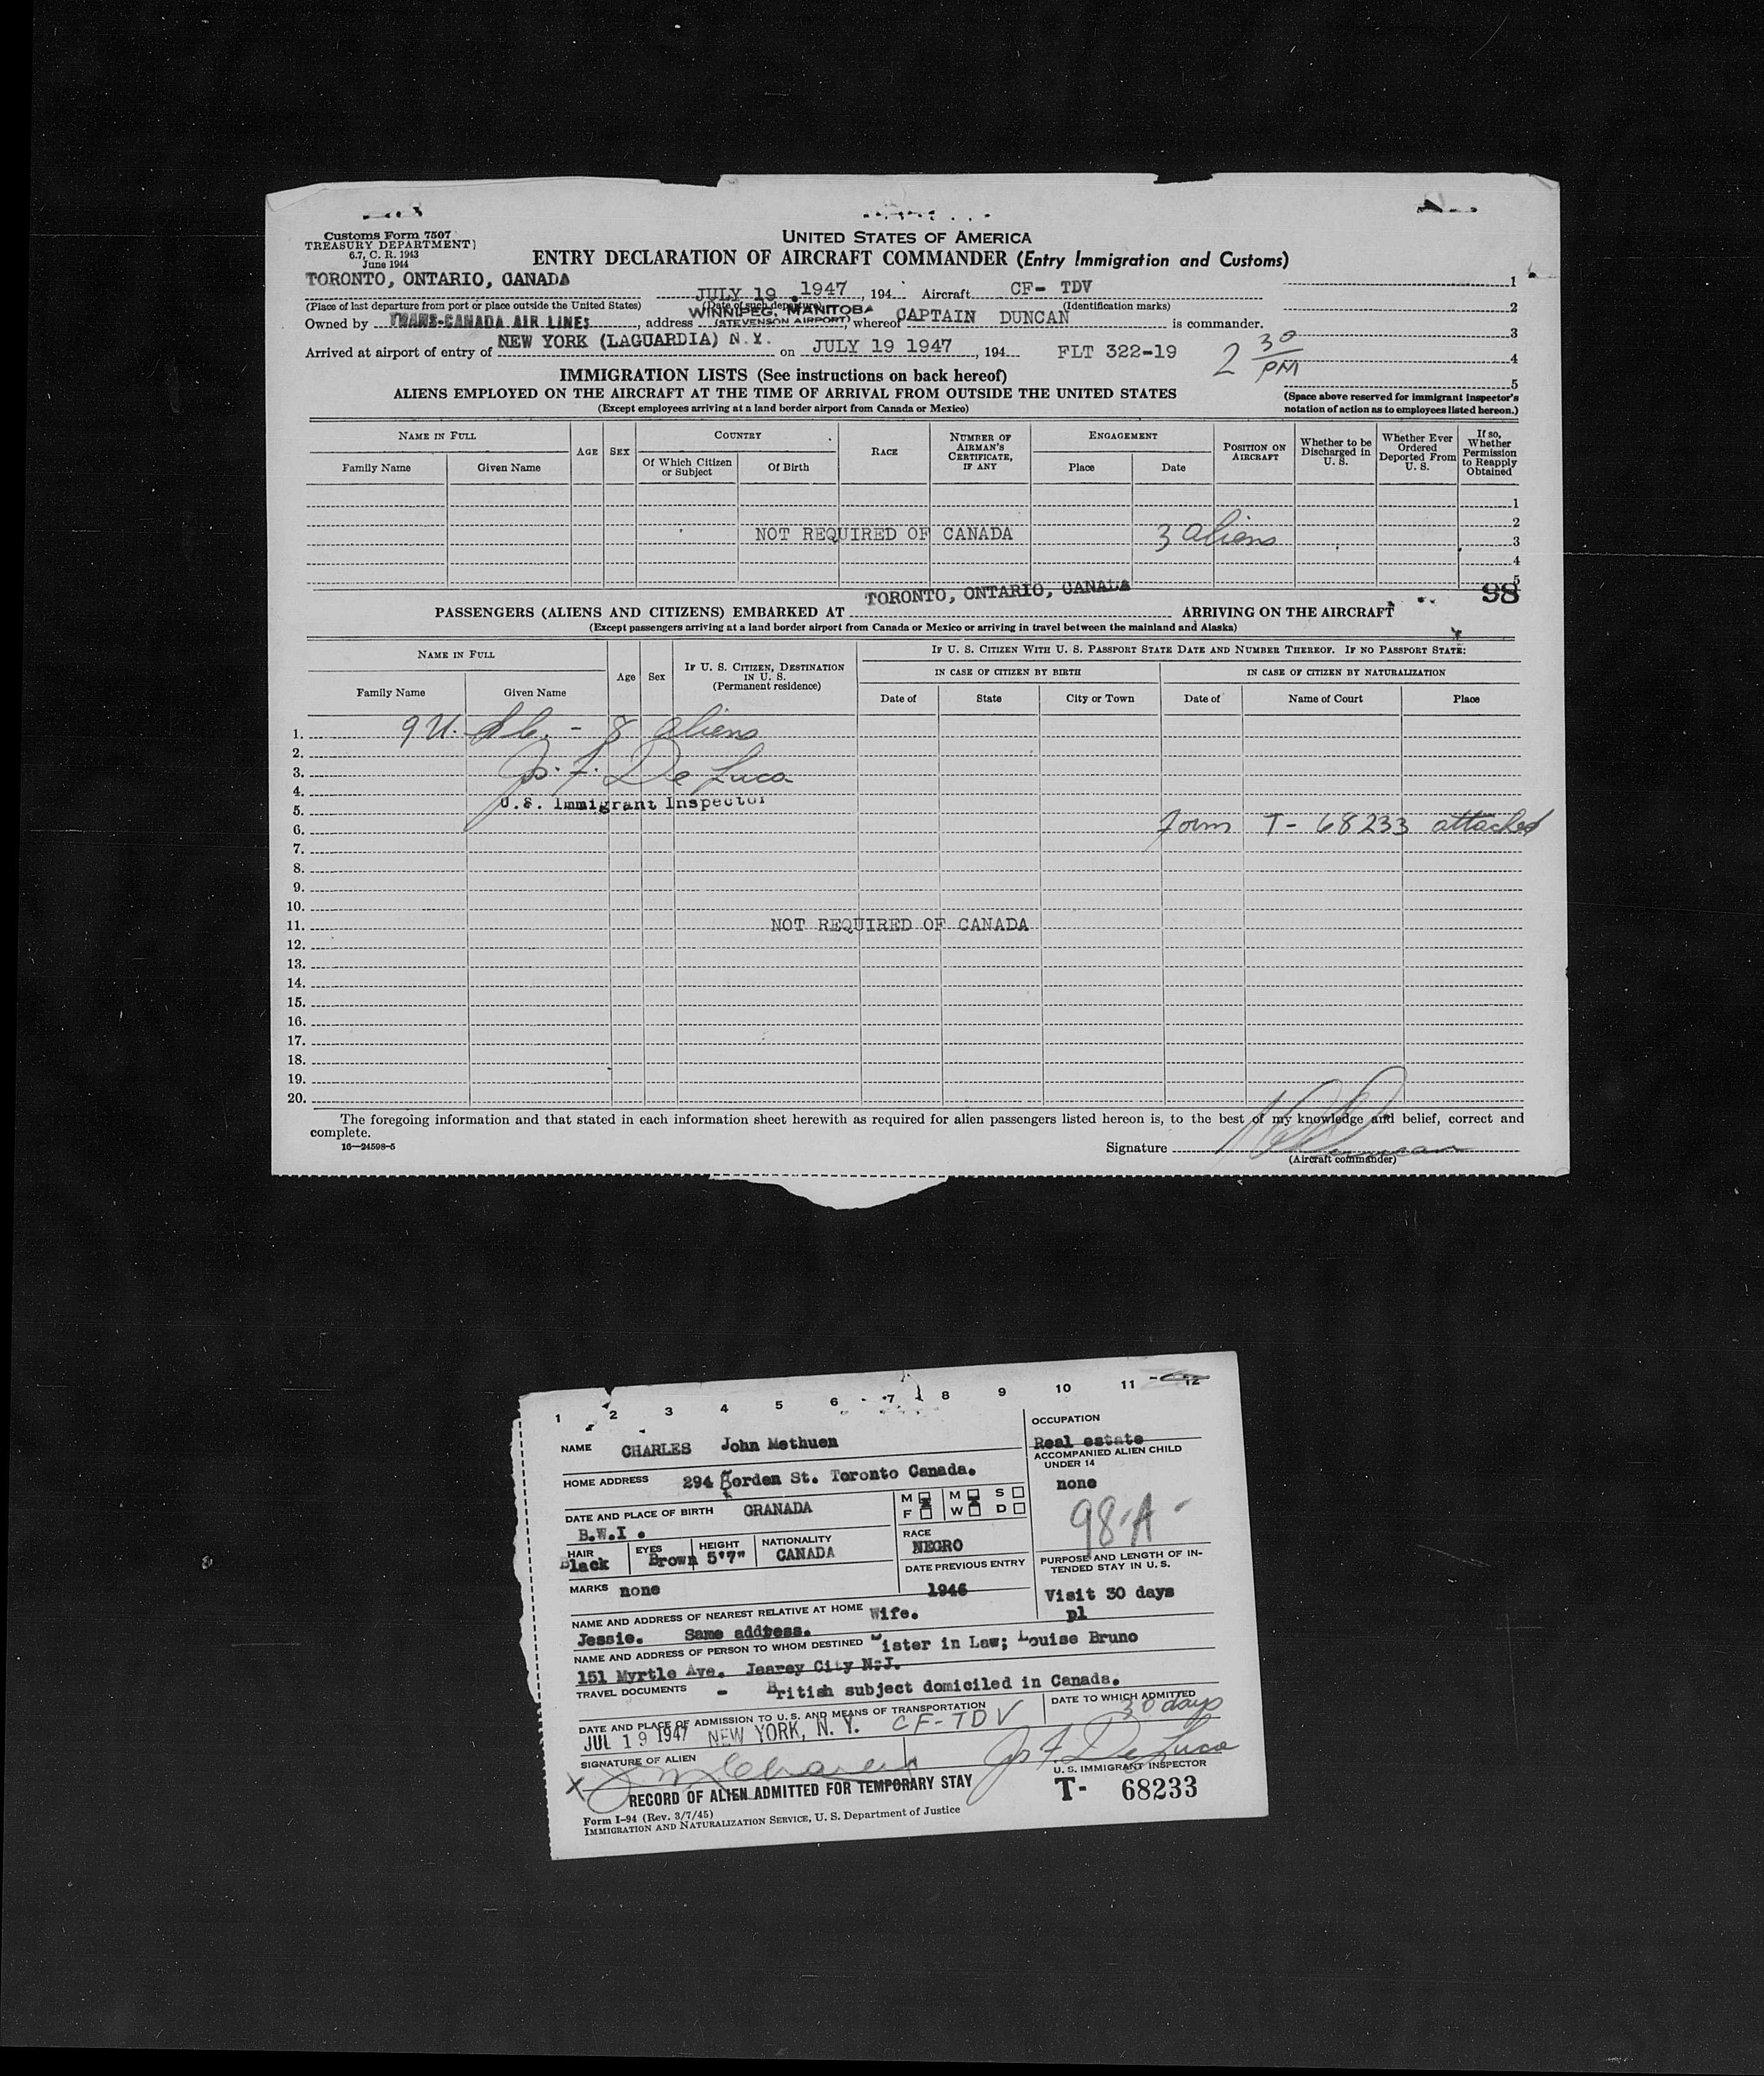 Customs Form 7507
TREASURY DEPARTMENT
6.7, C. R. 1943
June 1944
UNITED STATES OF AMERICA
ENTRY DECLARATION OF AIRCRAFT COMMANDER (Entry Immigration and Customs)
TORONTO, ONTARIO, CANADA JULY 19 1947, 194 Aircraft CF- TDV 1
(Place of last departure from port or place outside the United States) (Date of such departure) (Identification marks) 2
WINNIPEG, MANITOBA
Owned by TRANS-CANADA AIR LINES, address (STEVENSON AIRPORT), whereof CAPTAIN DUNCAN is commander. 3
Arrived at airport of entry of NEW YORK (LAGUARDIA) N.Y. on JULY 19 1947, 194 FLT 322-19 2 30 PM 4
IMMIGRATION LISTS (See instructions on back hereof) 5
ALIENS EMPLOYED ON THE AIRCRAFT AT THE TIME OF ARRIVAL FROM OUTSIDE THE UNITED STATES
(Except employees arriving at a land border airport from Canada or Mexico)
(Space above reserved for immigrant inspector's notation of action as to employees listed hereon.)
NAME IN FULL AGE SEX COUNTRY RACE NUMBER OF AIRMAN'S CERTIFICATE, IF ANY ENGAGEMENT POSITION ON AIRCRAFT Whether to be Discharged in U. S. Whether Ever Ordered Deported From U. S. If so, Whether Permission to Reapply Obtained
Family Name Given Name Of Which Citizen or Subject Of Birth Place Date
1
2
NOT REQUIRED OF CANADA 3 aliens 3
4
5
98
PASSENGERS (ALIENS AND CITIZENS) EMBARKED AT TORONTO, ONTARIO, CANADA ARRIVING ON THE AIRCRAFT
(Except passengers arriving at a land border airport from Canada or Mexico or arriving in travel between the mainland and Alaska)
NAME IN FULL Age Sex IF U. S. CITIZEN, DESTINATION IN U. S. (Permanent residence) IF U. S. CITIZEN WITH U. S. PASSPORT STATE DATE AND NUMBER THEREOF. IF NO PASSPORT STATE:
IN CASE OF CITIZEN BY BIRTH IN CASE OF CITIZEN BY NATURALIZATION
Family Name Given Name Date of State City or Town Date of Name of Court Place
1. 9 U. S. C. - 8 aliens
2.
3. Jos. F. De Luca
4.
U.S. Immigrant Inspector
5.
6. Form T- 68233 attached
7.
8.
9.
10.
11. NOT REQUIRED OF CANADA
12.
13.
14.
15.
16.
17.
18.
19.
20.
The foregoing information and that stated in each information sheet herewith as required for alien passengers listed hereon is, to the best of my knowledge and belief, correct and
complete.
16—24598-5
Signature Duncan
(Aircraft commander)
1 2 3 4 5 6 7 8 9 10 11 12
NAME CHARLES John Methuen
OCCUPATION
Real estate
HOME ADDRESS 294 Gorden St. Toronto Canada.
ACCOMPANIED ALIEN CHILD UNDER 14
none
98-A-
DATE AND PLACE OF BIRTH GRANADA
B.W.I.
M F M W S D
HAIR Black EYES Brown HEIGHT 5'7" NATIONALITY CANADA
RACE NEGRO
MARKS none
DATE PREVIOUS ENTRY 1946
PURPOSE AND LENGTH OF INTENDED STAY IN U. S.
Visit 30 days
pl
NAME AND ADDRESS OF NEAREST RELATIVE AT HOME Wife.
Jessie. Same address.
NAME AND ADDRESS OF PERSON TO WHOM DESTINED Sister in Law; Louise Bruno
151 Myrtle Ave. Jearey City N.J.
TRAVEL DOCUMENTS - British subject domiciled in Canada.
DATE AND PLACE OF ADMISSION TO U. S. AND MEANS OF TRANSPORTATION DATE TO WHICH ADMITTED
JUL 19 1947 NEW YORK, N. Y. CF-TDV 30 days
SIGNATURE OF ALIEN
X J M Charles Jos F. De Luca
U. S. IMMIGRANT INSPECTOR
RECORD OF ALIEN ADMITTED FOR TEMPORARY STAY T- 68233
Form I-94 (Rev. 3/7/45)
IMMIGRATION AND NATURALIZATION SERVICE, U. S. Department of Justice